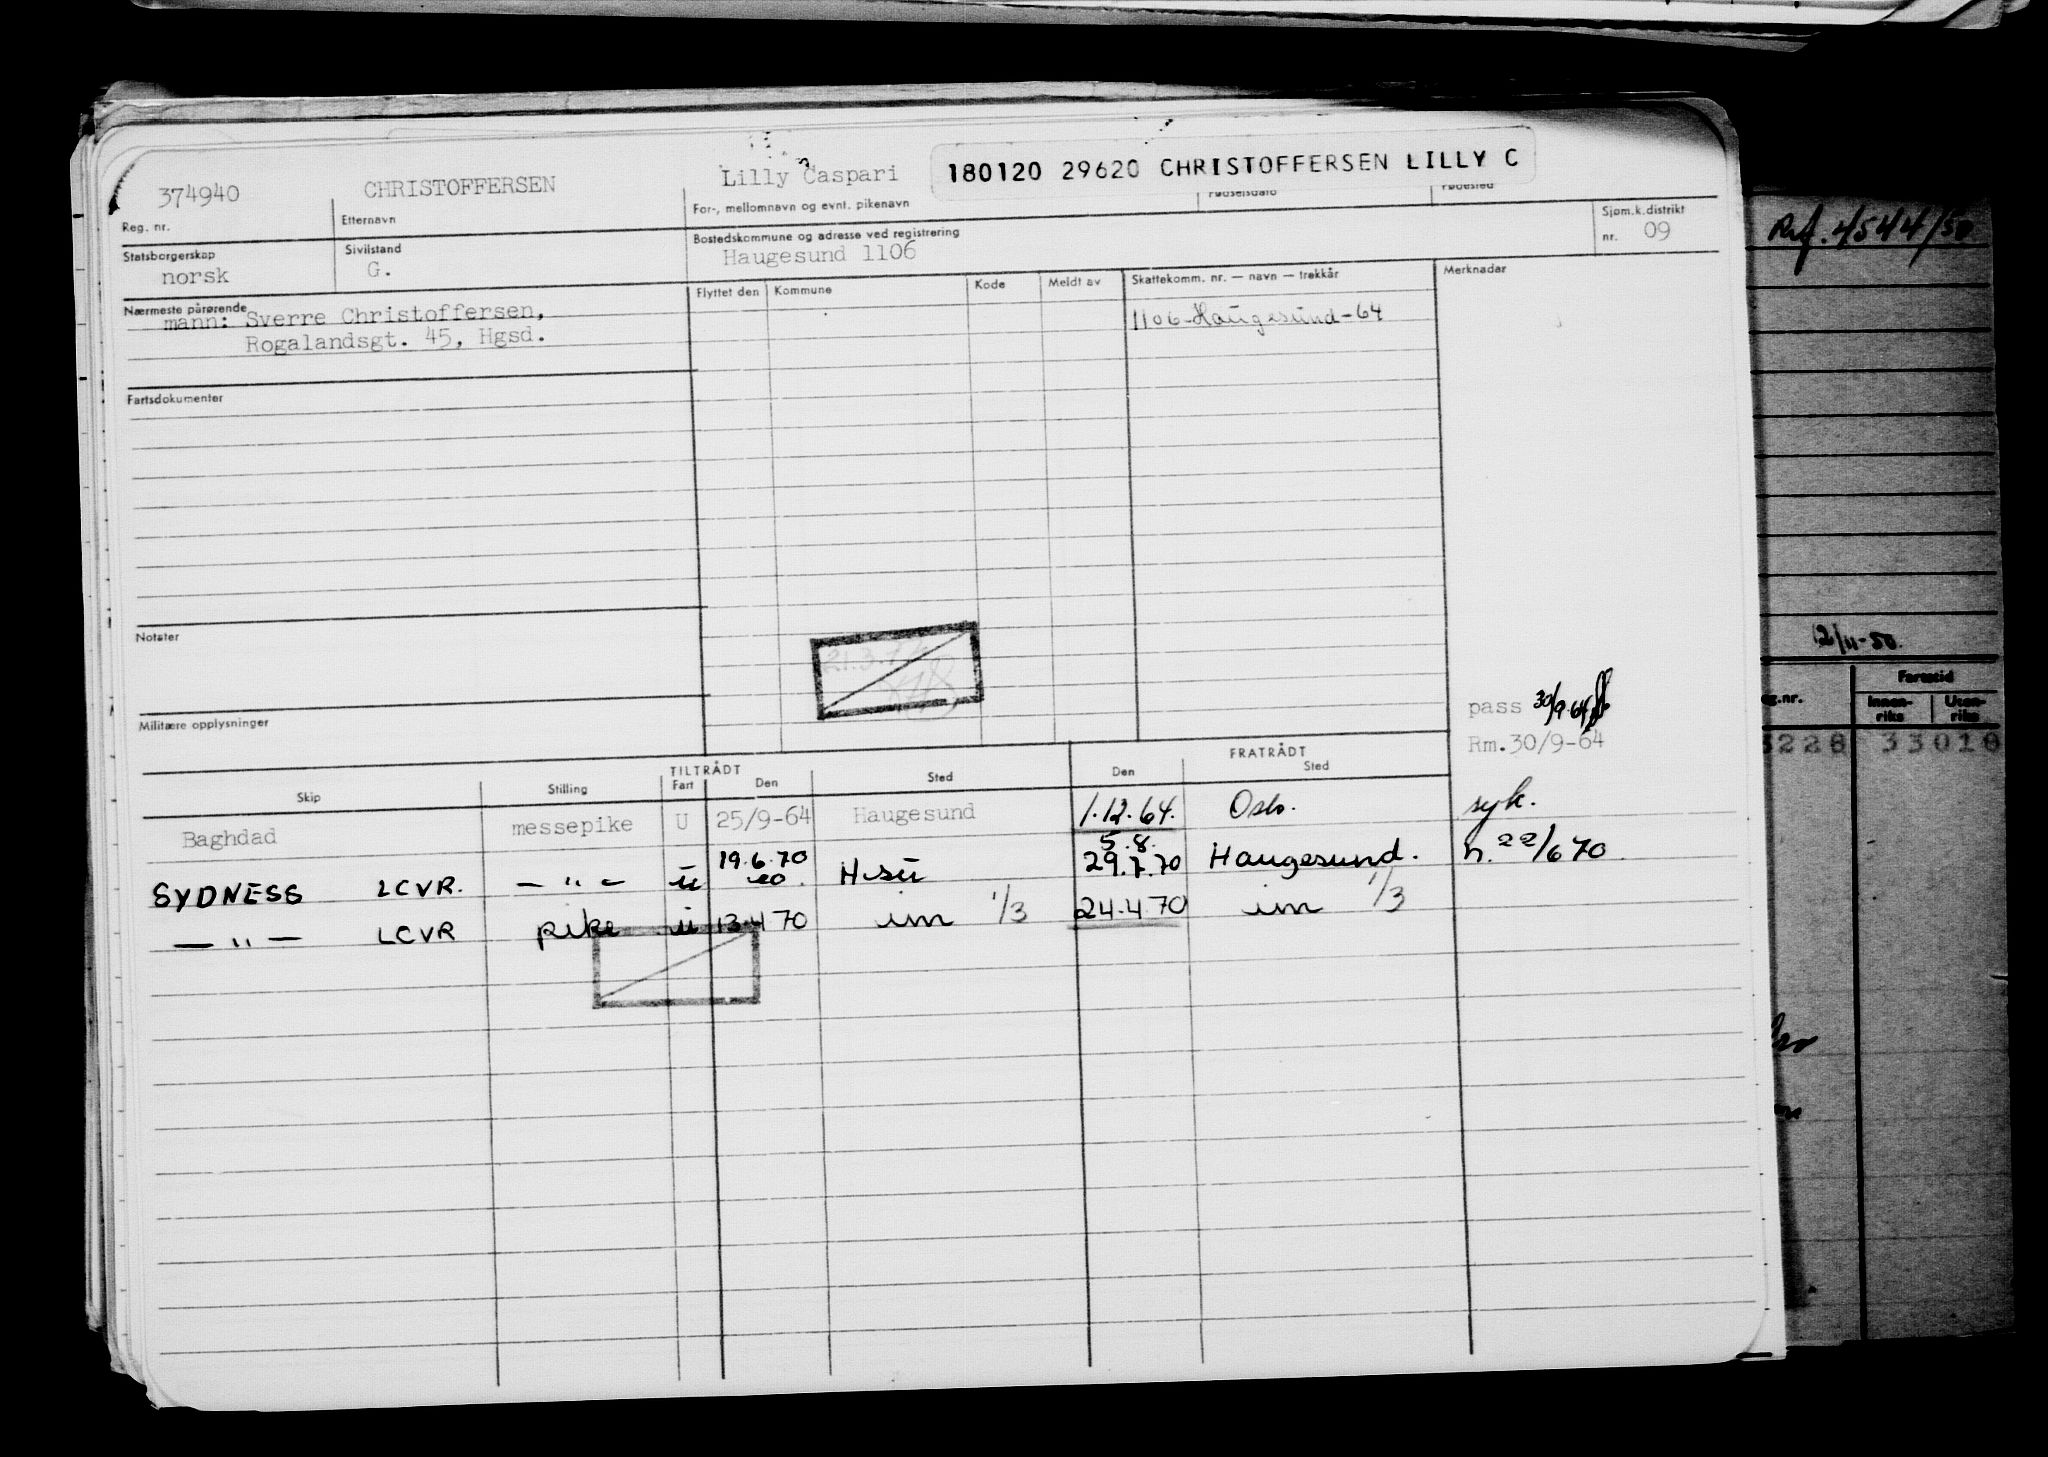 374940 CHRISTOFFERSEN Lilly Caspari 180120 29620 CHRISTOFFERSEN LILLY C
Reg. nr. Etternavn For-, mellomnavn og evnt. pikenavn Fødselsdato Fødested
Statsborgerskap Sivilstand Bostedskommune og adresse ved registrering Sjøm.k.distrikt
norsk G. Haugesund 1106 nr. 09
Nærmeste pårørende Flyttet den Kommune Kode Meldt av Skattekomm. nr. — navn — trekkår Merknader
mann: Sverre Christoffersen, 1106-Haugesund-64
Rogalandsgt. 45, Hgsd.
Fartsdokumenter
Notater
21.3.7
Militære opplysninger
pass 30/9-64
Rm.30/9-64
TILTRÅDT FRATRÅDT
Skip Stilling Fart Den Sted Den Sted
Baghdad messepike U 25/9-64 Haugesund 1.12.64. Oslo. syk.
19.6.70 5.8.
SYDNESS LCVR. — " — u 20. H-su 29.7.70 Haugesund. n. 22/6 70
— " — LCVR pike u 13.4 70 im 1/3 24.4 70 im 1/3
Ref. 4544/50
2/11-50.
Fartstid
eg.nr. Innen-riks Uten-riks
3228 33018